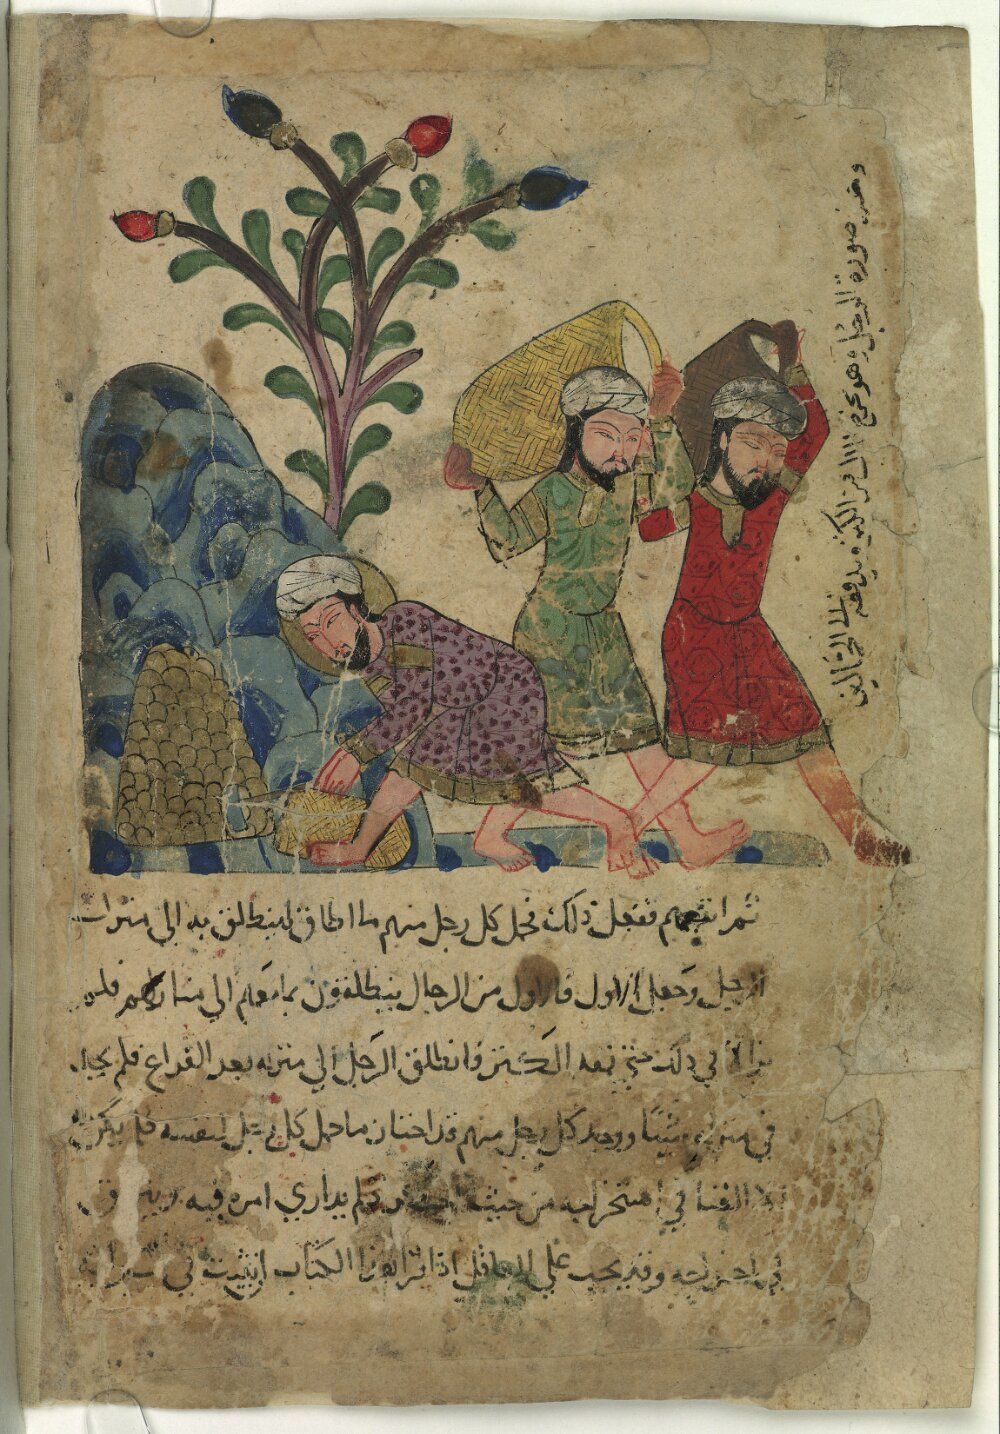 وهذه صورة الرجل وهو يخرج المال من الكنز ويدفعه الى الحمالين
ثم انتهم ففعل ذلك فحمل كل رجل منهم ما اطاق لينطلق به الي منزل
الرجل وجعل الاول فالاول من الرجال ينطلقون بما معهم الي منازلهم فلم
يزالا في ذلك حتي نفد الكنز فانطلق الرجل الي منزله بعد الفراغ فلم يجد
في منزله شيئا ووجد كل رجل منهم قد احتاز ما حمل كل رجل لنفسه فلم يكن
الا العنا في استخراجه من حيث لم يداري امره فيه
في اخراجه وقد يجب علي العاقل اذا قرا هذا الكتاب ان يثبت في